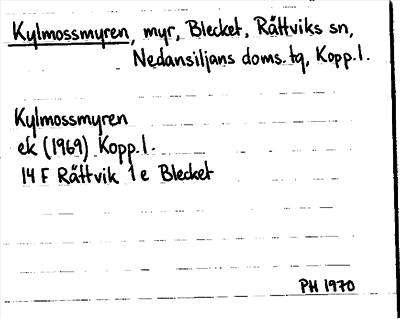 Kylmossmyren, myr, Blecket, Rättviks sn,
Nedansiljans doms. tg, Kopp. l.
Kylmossmyren
ek (1969) Kopp. l.
14 F Rättvik 1 e Blecket
PH 1970